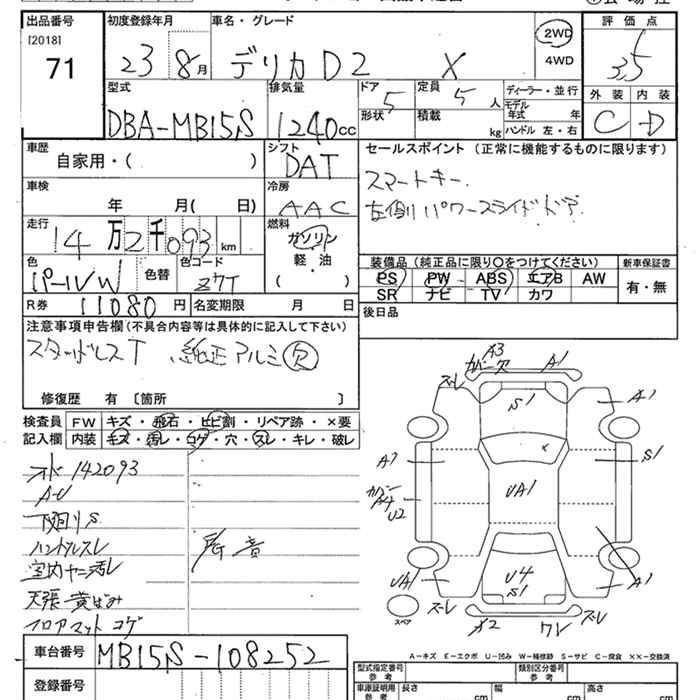 出品番号 初度登録年月 車名・グレード 評価点
[2018]
71 23 8月 デリカD2 X 2WD 4WD 3.5
型式 排気量 ドア 5 定員 5人 ディーラー・並行 外装 内装
DBA-MB15S 1240cc 形状 積載 kg モデル年式 年 ハンドル 左・右 C D
車歴 シフト セールスポイント (正常に機能するものに限ります)
自家用・( ) DAT スマートキー
車検 冷房 左側パワースライドドア
年 月( 日) AAC
走行 燃料
14万2千093km ガソリン
色 色替 色コード 軽・油 装備品 (純正品に限り○をつけてください) 新車保証書
パールW Z7T ( ) PS PW ABS エアB AW 有・無
SR ナビ TV カワ
R券 11080円 名変期限 月 日 後日品
注意事項申告欄(不具合内容等は具体的に記入して下さい)
スタッドレスT 純正アルミ欠
修復歴 有 〔箇所 〕
検査員 FW キズ・飛石・ヒビ割・リペア跡・×要
記入欄 内装 キズ・汚レ・コゲ・穴・スレ・キレ・破レ
142093
A-U
下廻りS
ハンドルスレ
室内ヤニ汚レ 音
天張黄ばみ
フロアマットコゲ
A3
カバー欠 A1
スレ
S1
A1 A1
S1
UA1
カバー
A4
U2
U4
S1
UA1 A1
スレ スレ
スペア
A-キズ E-エクボ U-凹み W-補修跡 S-サビ C-腐食 XX-交換済
車台番号 MB15S-108252
登録番号
型式指定番号 参考 類別区分番号 参考
車庫証明用 参考 長さ cm 幅 cm 高さ cm